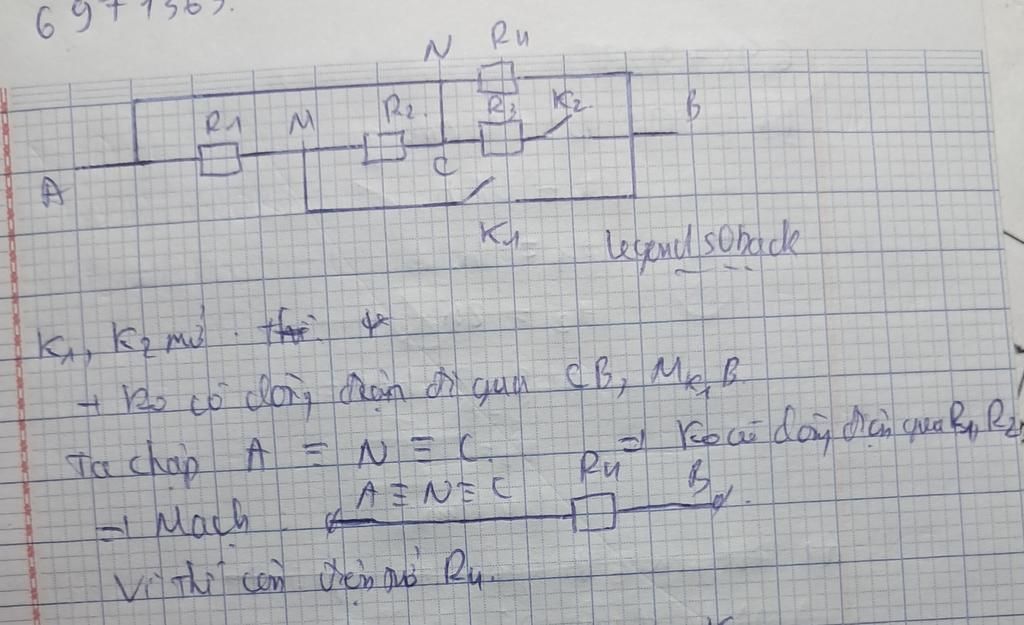 6 9 + 1363.
N R4
R1 M R2 R3 K2 B
A C
K1 legends0back
K1, K2 mở. thì
+ Ko có dòng điện đi qua CB, MK1B
Ta chập A ≡ N ≡ C. => Ko có dòng điện qua R1, R2,
R4
=> Mạch A ≡ N ≡ C B
Vì thế còn điện trở R4.